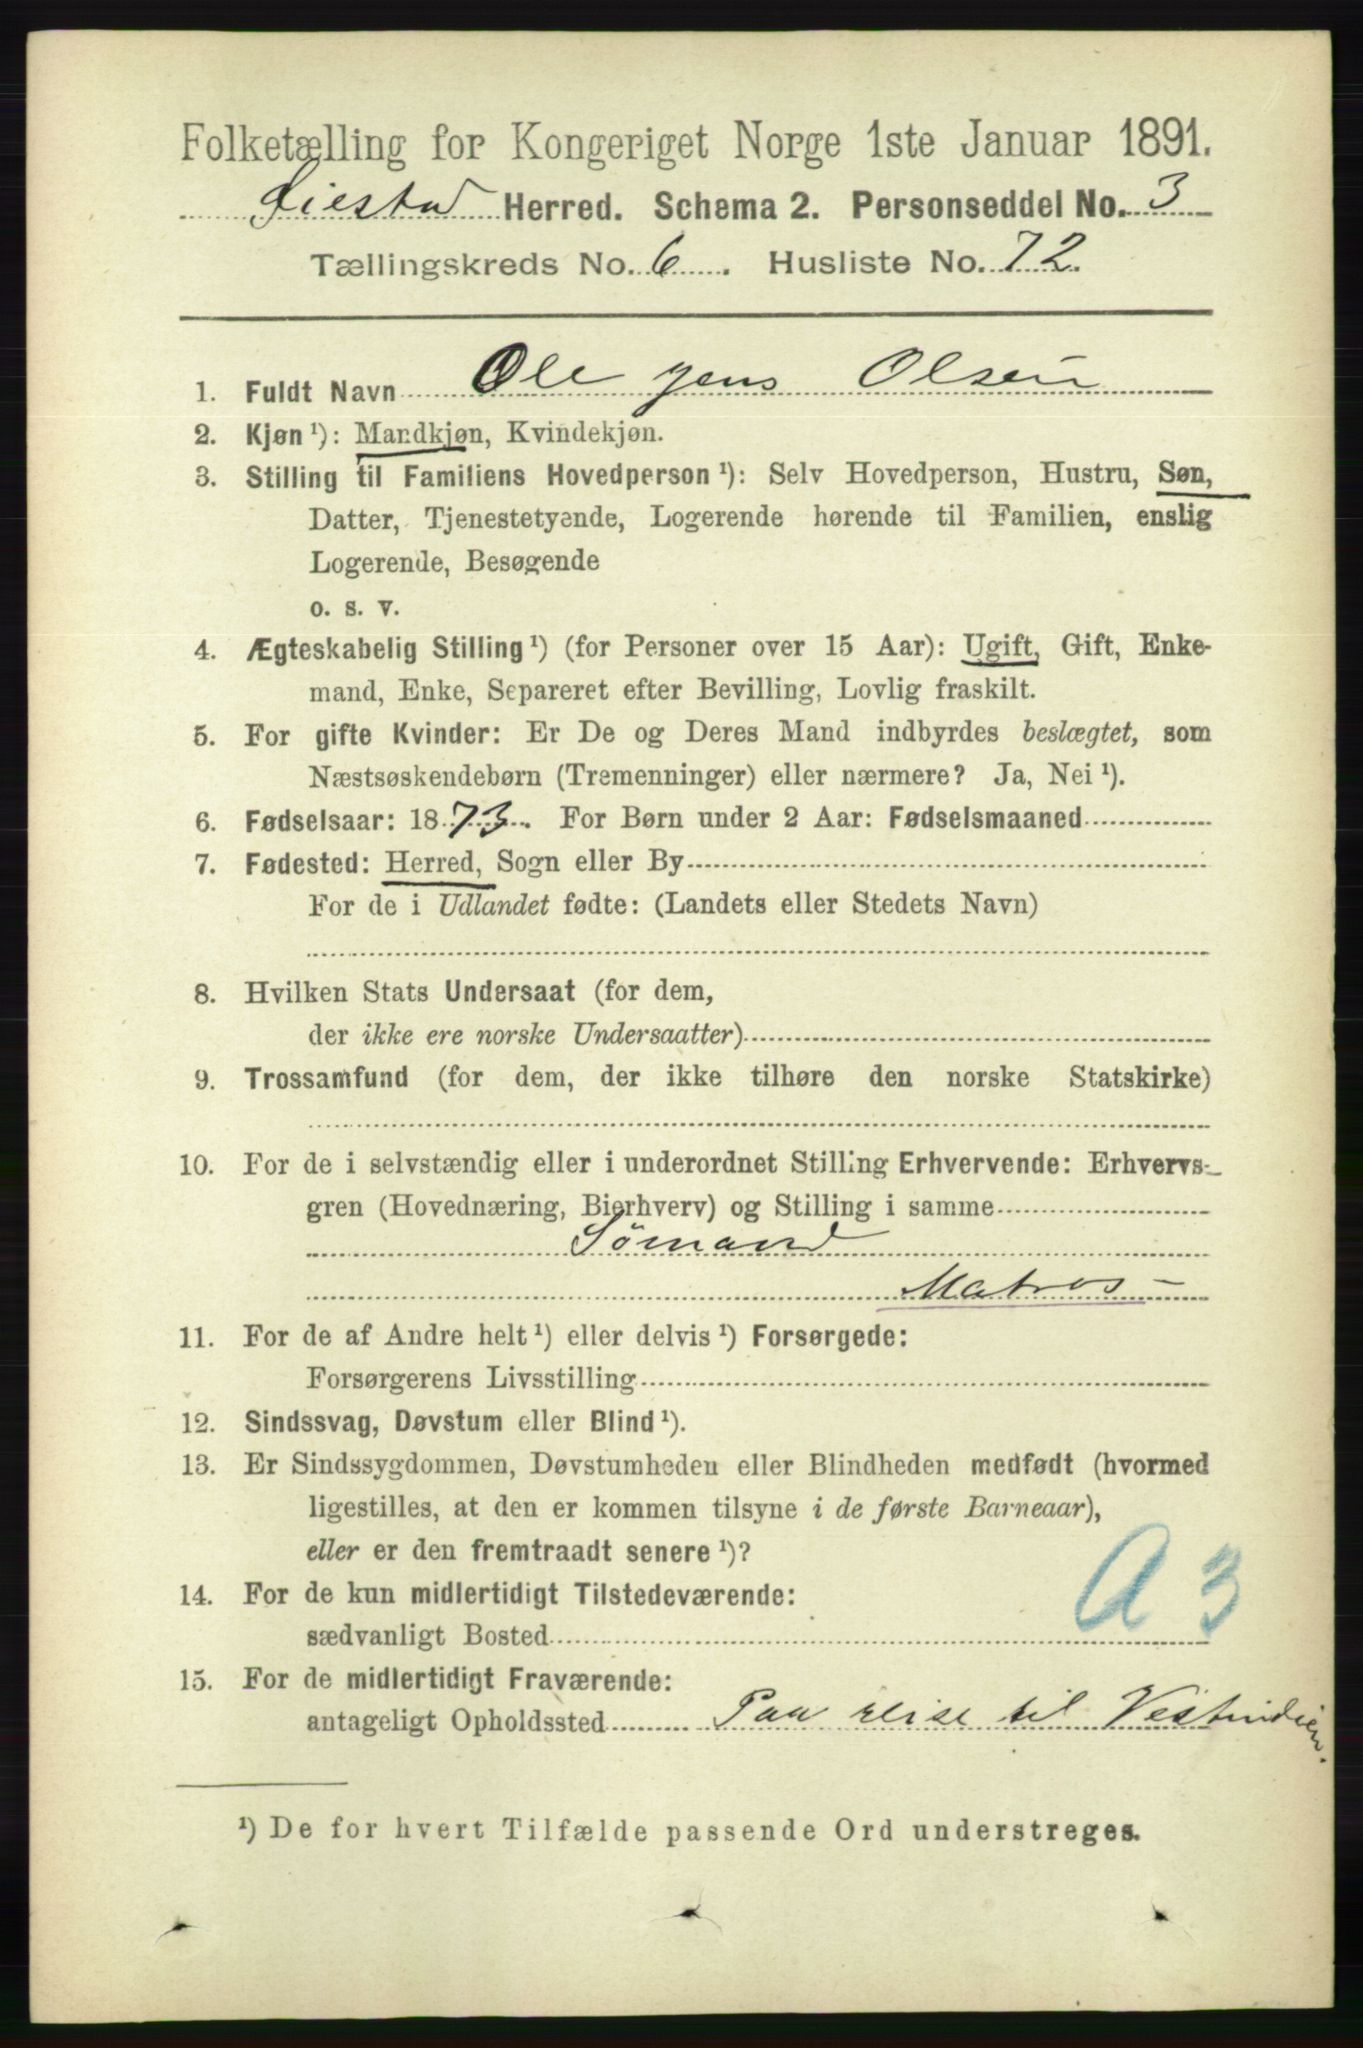 Folketælling for Kongeriget Norge 1ste Januar 1891.
Øiestad Herred. Schema 2. Personseddel No. 3
Tællingskreds No. 6. Husliste No. 72.
1. Fuldt Navn Ole Jens Olsen
2. Kjøn ¹): Mandkjøn, Kvindekjøn.
3. Stilling til Familiens Hovedperson ¹): Selv Hovedperson, Hustru, Søn,
Datter, Tjenestetyende, Logerende hørende til Familien, enslig
Logerende, Besøgende
o. s. v.
4. Ægteskabelig Stilling ¹) (for Personer over 15 Aar): Ugift, Gift, Enke-
mand, Enke, Separeret efter Bevilling, Lovlig fraskilt.
5. For gifte Kvinder: Er De og Deres Mand indbyrdes beslægtet, som
Næstsøskendebørn (Tremenninger) eller nærmere? Ja, Nei ¹).
6. Fødselsaar: 1873. For Børn under 2 Aar: Fødselsmaaned
7. Fødested: Herred, Sogn eller By
For de i Udlandet fødte: (Landets eller Stedets Navn)
8. Hvilken Stats Undersaat (for dem,
der ikke ere norske Undersaatter)
9. Trossamfund (for dem, der ikke tilhøre den norske Statskirke)
10. For de i selvstændig eller i underordnet Stilling Erhvervende: Erhvervs-
gren (Hovednæring, Bierhverv) og Stilling i samme
Sømand
Matros -
11. For de af Andre helt ¹) eller delvis ¹) Forsørgede:
Forsørgerens Livsstilling
12. Sindssvag, Døvstum eller Blind ¹).
13. Er Sindssygdommen, Døvstumheden eller Blindheden medfødt (hvormed
ligestilles, at den er kommen tilsyne i de første Barneaar),
eller er den fremtraadt senere ¹)?
A 3
14. For de kun midlertidigt Tilstedeværende:
sædvanligt Bosted
15. For de midlertidigt Fraværende:
antageligt Opholdssted Paa reise til Vestindien.
¹) De for hvert Tilfælde passende Ord understreges.